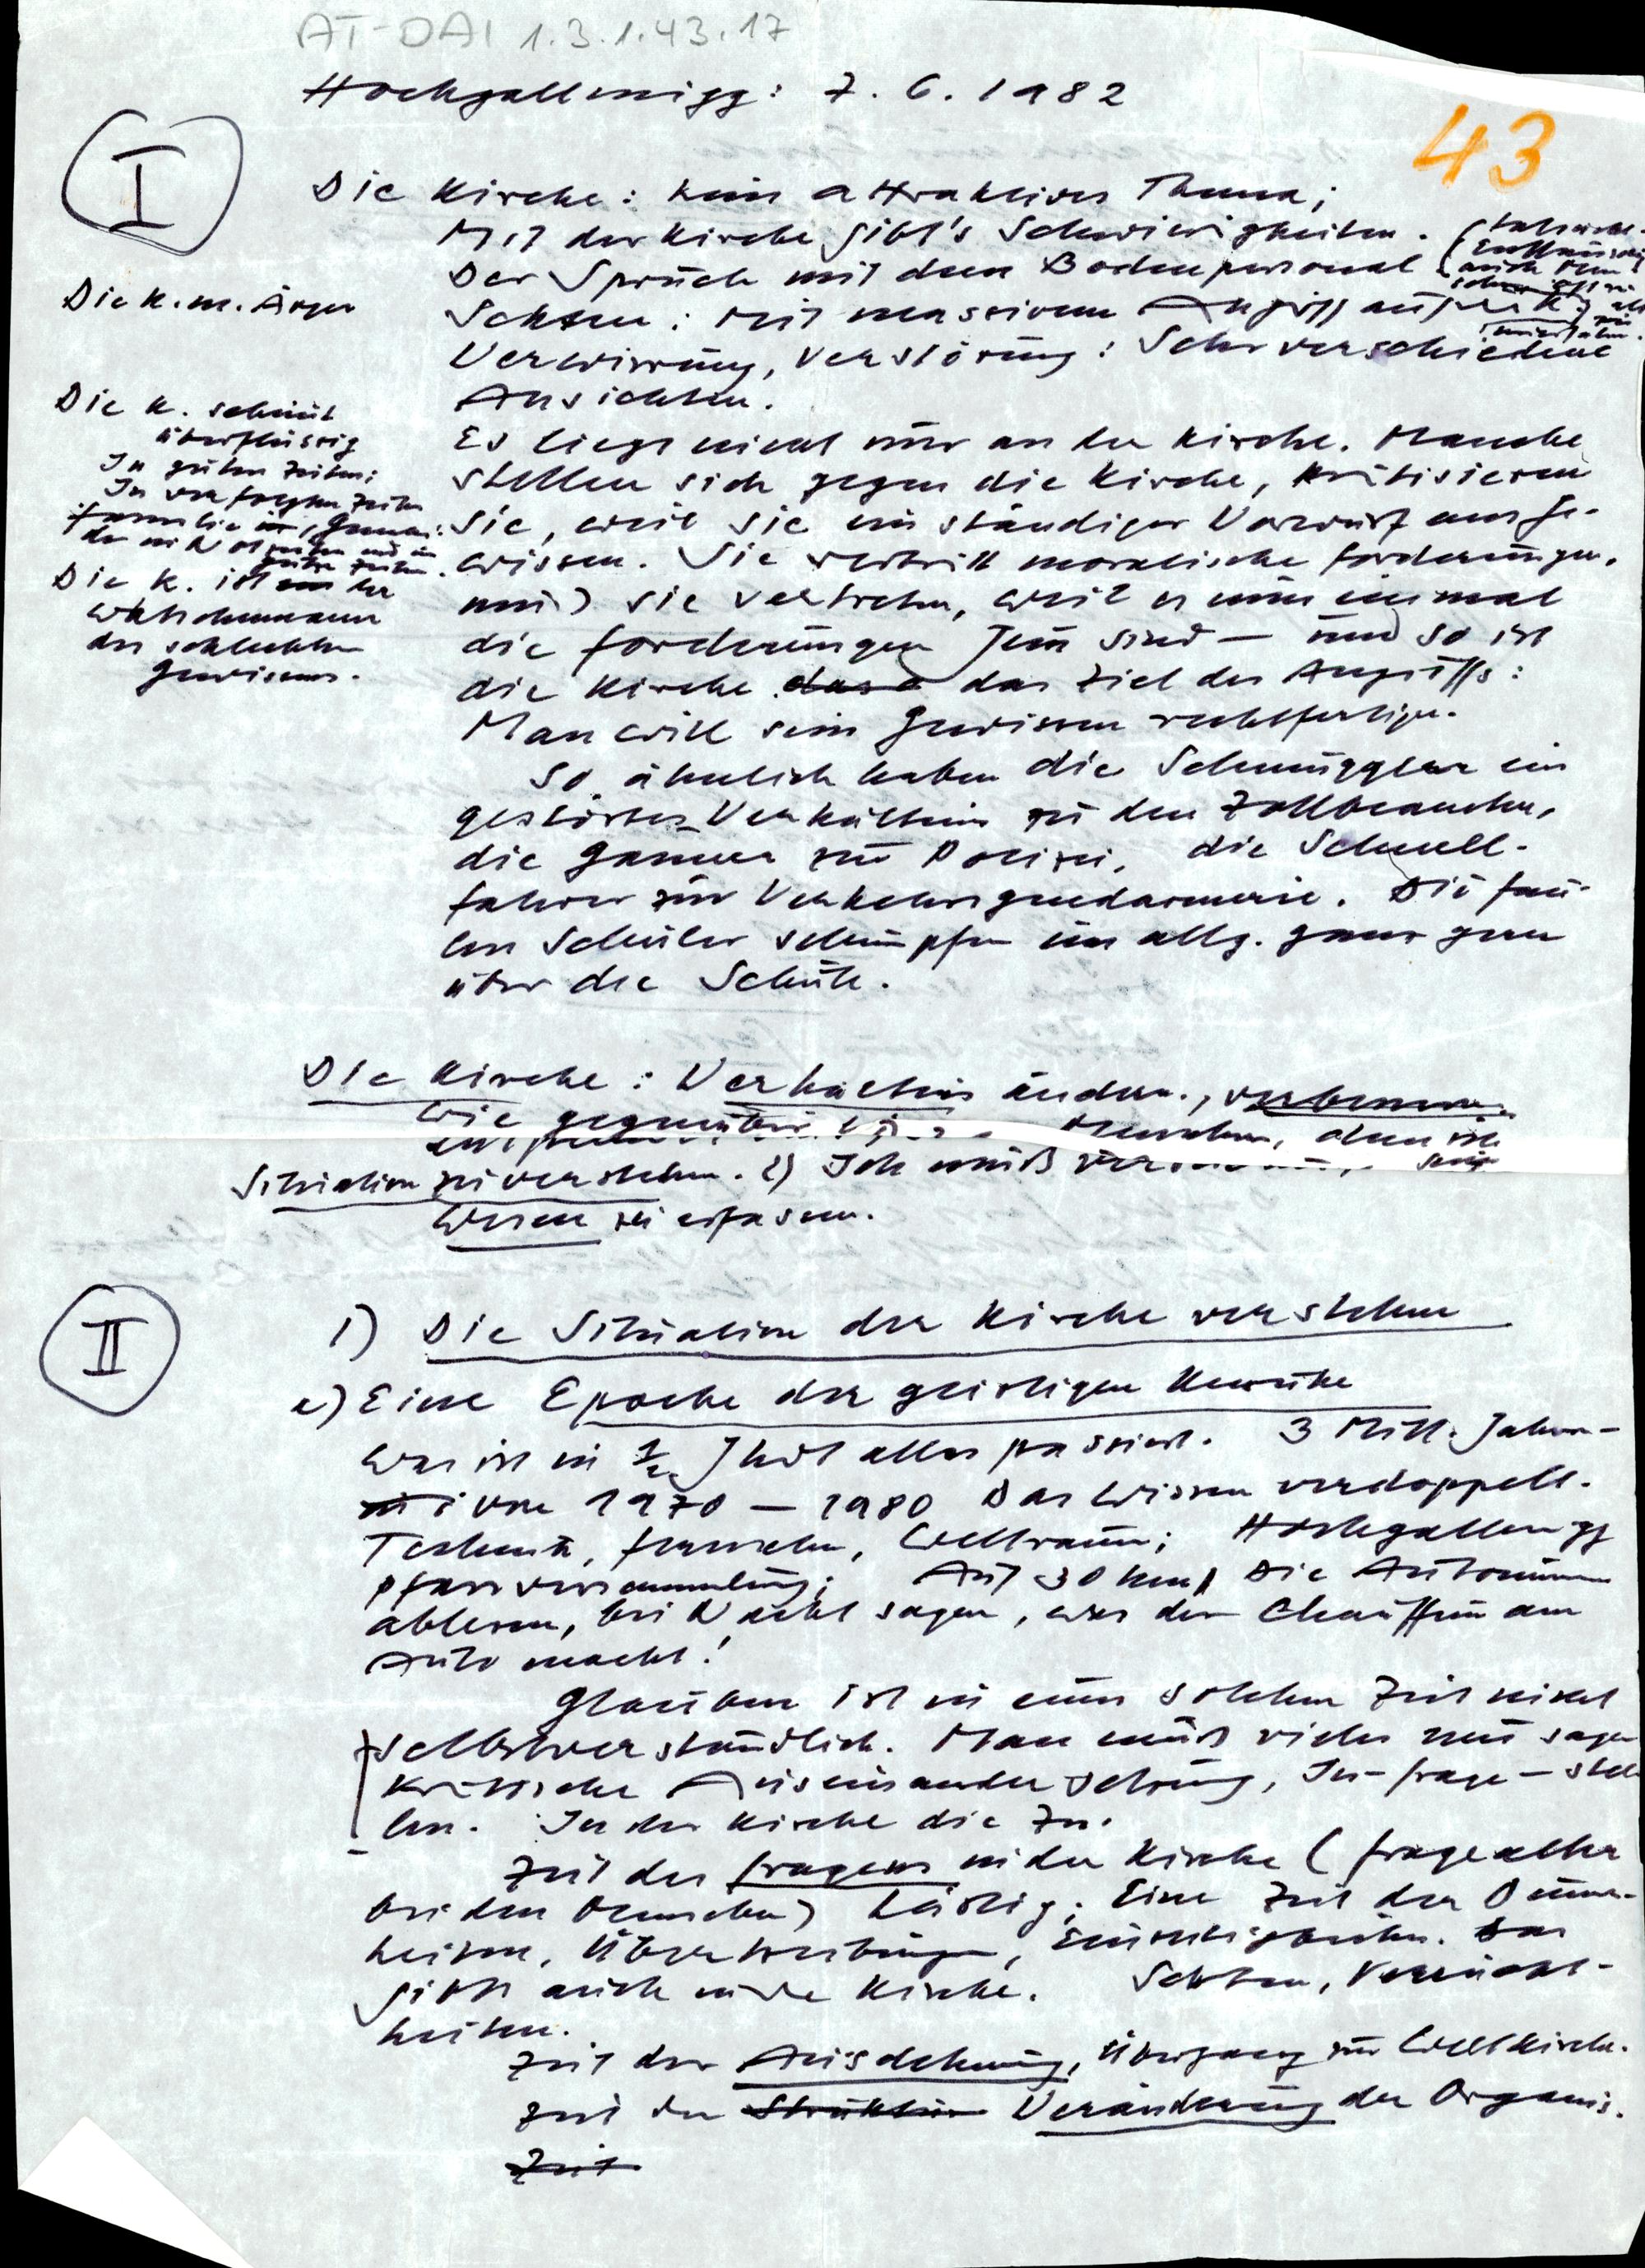 AT-DAI 1.3.1.43.17
Hochgallmigg: 7. 6. 1982
43
I
Die Kirche: kein attraktives Thema;
Mit der Kirche gibt's Schwierigkeiten.
Der Spruch mit dem Bodenpersonal
Die K. m. Ärger
Sekten: Mit massivem Angriff auf
Verwirrung, Verstörung: Sehr verschiedene
Ansichten.
Die K. scheint
überflüssig
In guten Zeiten:
Es liegt nicht nur an der Kirche. Manche
stellen sich gegen die Kirche, kritisieren
sie, weil sie ein ständiger Vorwurf ans Ge-
wissen. Sie vertritt moralische Forderungen,
muß sie vertreten, weil es nun einmal
die Forderungen Jesu sind — und so ist
die Kirche das Ziel des Angriffs:
Man will sein Gewissen rechtfertigen.
Die K. ist der
Watschenmann
des schlechten
Gewissens.
So ähnlich haben die Schmuggler ein
gestörtes Verhältnis zu den Zollbeamten,
die Gauner zur Polizei, die Schnell-
fahrer zur Verkehrsgendarmerie. Die fau-
len Schüler schimpfen im allg. ganz gern
über die Schule.
Die Kirche: Verhältnis ändern, verbessern.
Wie gegenüber Menschen, dem ich
Situation zu verstehen. 2) Ich muß sein
Wesen zu erfassen.
II
1) Die Situation der Kirche verstehen
a) Eine Epoche der geistigen Unruhe
Was ist in 1/2 Jhdt alles passiert. 3 Mill. Jahre –
von 1970 — 1980 Das Wissen verdoppelt.
Technik, Fernsehen, Weltraum; Hochgallmigg
Pfarrversammlung; Auf 30 km die Autonummern
ablesen, bei Nacht sagen, was der Chauffeur am
Auto macht!
Glauben ist in einer solchen Zeit nicht
selbstverständlich. Man muß vieles neu sagen
Kritische Auseinandersetzung, In-Frage-stel
len. In der Kirche die
Zeit des Fragens in der Kirche (Fragealter
bei den Menschen) lästig; Eine Zeit der Dumm-
heiten, Übertreibungen, Einseitigkeiten. Das
gibts auch in der Kirche. Sekten, Verrückt-
heiten.
Zeit der Ausdehnung, Übergang zur Weltkirche.
Zeit der Struktur Veränderung der Organis.
Zeit